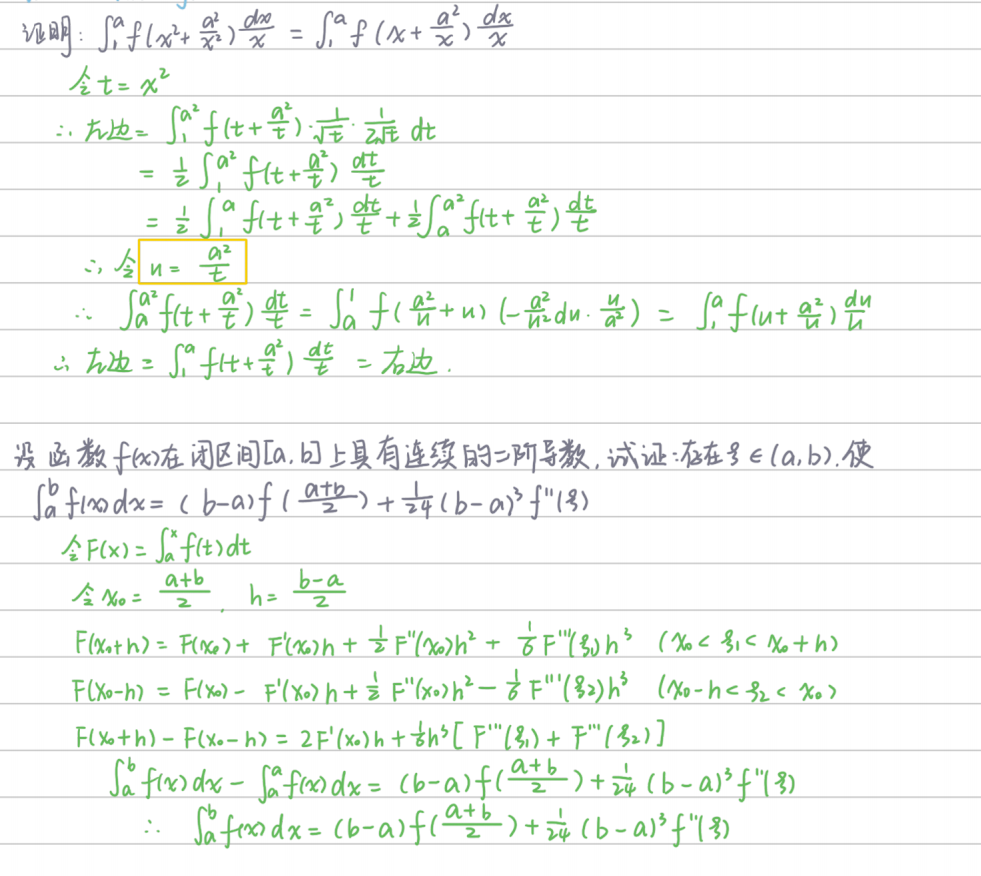 证明: ∫₁ᵃ f(x²+a²/x²) dx/x = ∫₁ᵃ f(x+a²/x) dx/x
令 t = x²
∴ 左边 = ∫₁^{a²} f(t+a²/t)·1/√t·1/(2√t) dt
= 1/2 ∫₁^{a²} f(t+a²/t) dt/t
= 1/2 ∫₁ᵃ f(t+a²/t) dt/t + 1/2 ∫ₐ^{a²} f(t+a²/t) dt/t
∴ 令 u = a²/t
∴ ∫ₐ^{a²} f(t+a²/t) dt/t = ∫ₐ¹ f(a²/u+u)(-a²/u² du·u/a²) = ∫₁ᵃ f(u+a²/u) du/u
∴ 左边 = ∫₁ᵃ f(t+a²/t) dt/t = 右边.
设函数f(x)在闭区间[a,b]上具有连续的二阶导数,试证:存在ξ∈(a,b).使
∫ₐᵇ f(x)dx = (b-a)f((a+b)/2) + 1/24 (b-a)³ f''(ξ)
令F(x) = ∫ₐˣ f(t)dt
令x₀ = (a+b)/2, h = (b-a)/2
F(x₀+h) = F(x₀) + F'(x₀)h + 1/2 F''(x₀)h² + 1/6 F'''(ξ₁)h³ (x₀<ξ₁<x₀+h)
F(x₀-h) = F(x₀) - F'(x₀)h + 1/2 F''(x₀)h² - 1/6 F'''(ξ₂)h³ (x₀-h<ξ₂<x₀)
F(x₀+h) - F(x₀-h) = 2F'(x₀)h + 1/6 h³[F'''(ξ₁) + F'''(ξ₂)]
∫ₐᵇ f(x)dx - ∫ₐᵃ f(x)dx = (b-a)f((a+b)/2) + 1/24 (b-a)³ f''(ξ)
∴ ∫ₐᵇ f(x)dx = (b-a)f((a+b)/2) + 1/24 (b-a)³ f''(ξ)